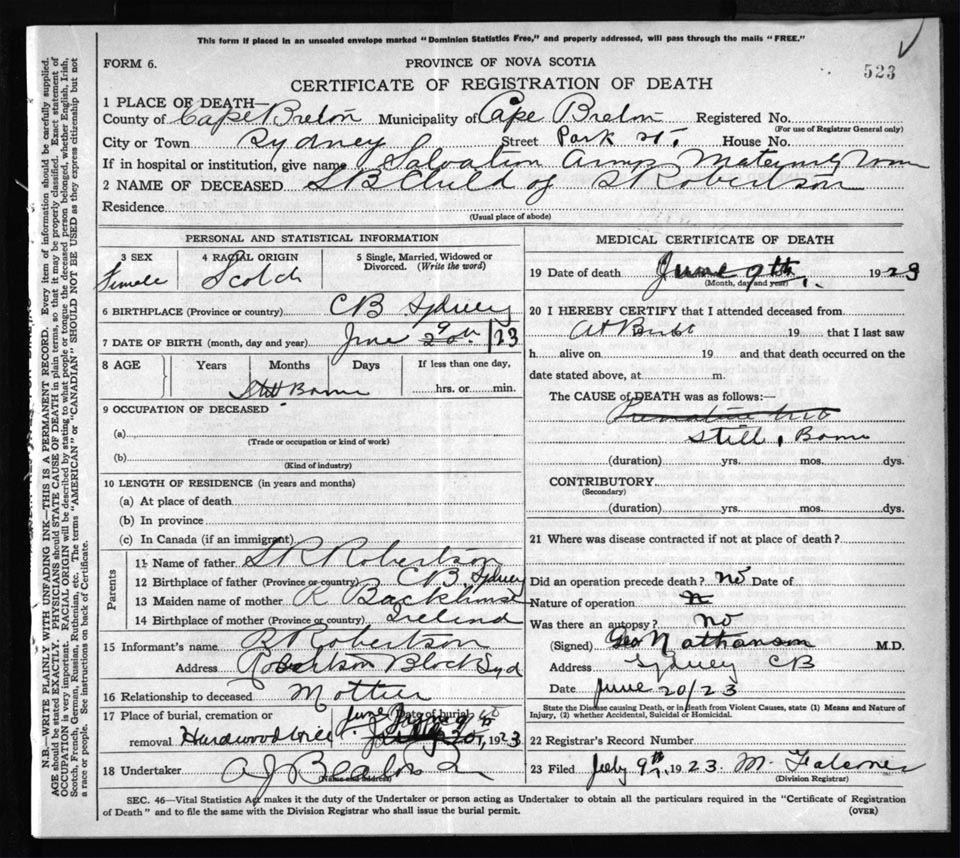 This form if placed in an unsealed envelope marked "Dominion Statistics Free," and properly addressed, will pass through the mails "FREE."
FORM 6.
PROVINCE OF NOVA SCOTIA
523
CERTIFICATE OF REGISTRATION OF DEATH
1 PLACE OF DEATH—
County of Cape Breton Municipality of Cape Breton Registered No.
(For use of Registrar General only)
City or Town Sydney Street Park St. House No.
If in hospital or institution, give name Salvation Army Maternity Home
2 NAME OF DECEASED SB Child of S Robertson
Residence
(Usual place of abode)
PERSONAL AND STATISTICAL INFORMATION
3 SEX
Female
4 RACIAL ORIGIN
Scotch
5 Single, Married, Widowed or Divorced. (Write the word)
6 BIRTHPLACE (Province or country) CB Sydney
7 DATE OF BIRTH (month, day and year) June 9 20th /23
8 AGE
Years Months Days If less than one day,
Still Born hrs. or min.
9 OCCUPATION OF DECEASED
(a)
(Trade or occupation or kind of work)
(b)
(Kind of industry)
10 LENGTH OF RESIDENCE (in years and months)
(a) At place of death
(b) In province
(c) In Canada (if an immigrant)
Parents
11 Name of father S R Robertson
12 Birthplace of father (Province or country) CB, Sydney
13 Maiden name of mother R
14 Birthplace of mother (Province or country) Ireland
15 Informant's name R Robertson
Address Robertson Block Syd
16 Relationship to deceased Mother
17 Place of burial, cremation or
(Date of burial)
removal Hardwood Hill June 9 1923
18 Undertaker A J
(Name and address)
MEDICAL CERTIFICATE OF DEATH
19 Date of death June 9th, 1923
(Month, day and year)
20 I HEREBY CERTIFY that I attended deceased from
At Birth 19 that I last saw
h alive on 19 and that death occurred on the
date stated above, at m.
The CAUSE of DEATH was as follows:—
Premature
Still, Born
(duration) yrs. mos. dys.
CONTRIBUTORY
(Secondary)
(duration) yrs. mos. dys.
21 Where was disease contracted if not at place of death?
Did an operation precede death? no Date of
Nature of operation
Was there an autopsy? no
(Signed) Geo Nathanson M.D.
Address Sydney CB
Date June 20/23
State the Disease causing Death, or in death from Violent Causes, state (1) Means and Nature of
Injury, (2) whether Accidental, Suicidal or Homicidal.
22 Registrar's Record Number
23 Filed July 9th, 1923 M. Falconer
(Division Registrar)
SEC. 46—Vital Statistics Act makes it the duty of the Undertaker or person acting as Undertaker to obtain all the particulars required in the "Certificate of Registration
of Death" and to file the same with the Division Registrar who shall issue the burial permit.
(OVER)
N.B.—WRITE PLAINLY WITH UNFADING INK—THIS IS A PERMANENT RECORD. Every item of information should be carefully supplied.
AGE should be stated EXACTLY. PHYSICIANS should STATE CAUSE OF DEATH in plain terms, so that it may be properly classified. Exact statement of
OCCUPATION is very important. RACIAL ORIGIN will be described by stating to what people or tongue the deceased person belonged, whether English, Irish,
Scotch, French, German, Russian, Ruthenian, etc. The terms "AMERICAN" or "CANADIAN" SHOULD NOT BE USED as they express citizenship but not
a race or people. See instructions on back of Certificate.